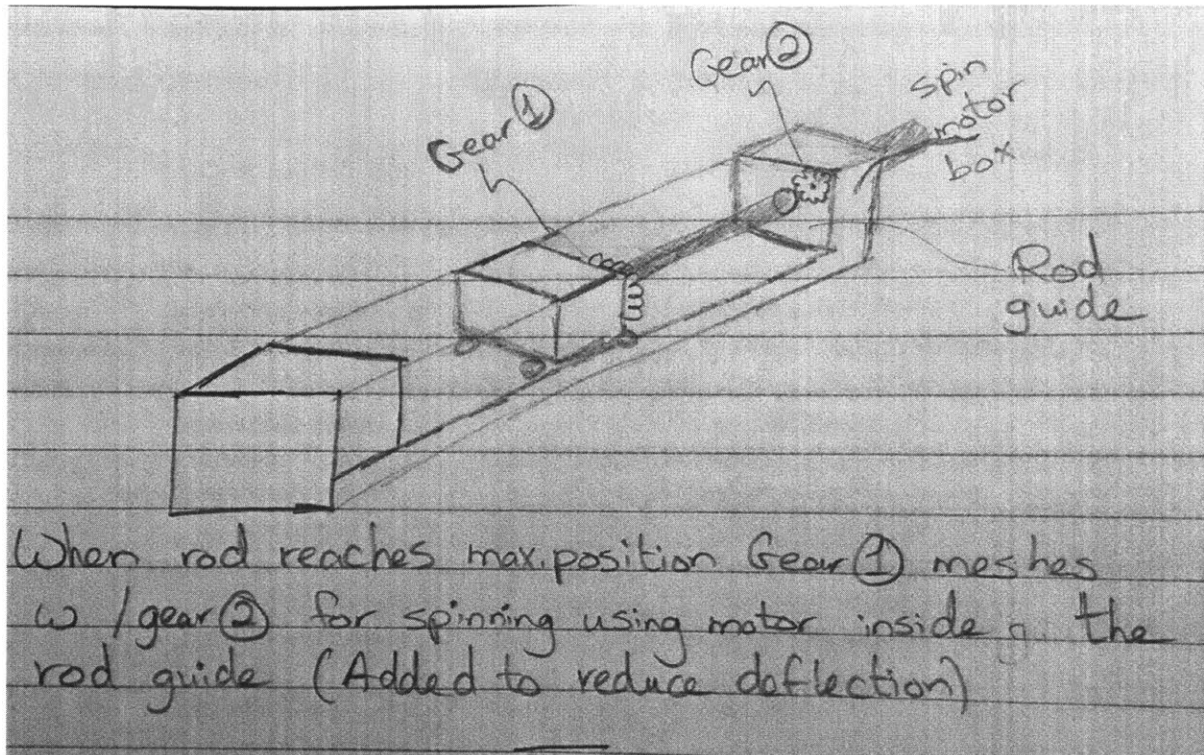 Gear ②
spin
motor
box
Gear ①
Rod
guide
When rod reaches max.position Gear ① meshes
w/gear ② for spinning using motor inside the
rod guide (Added to reduce deflection)